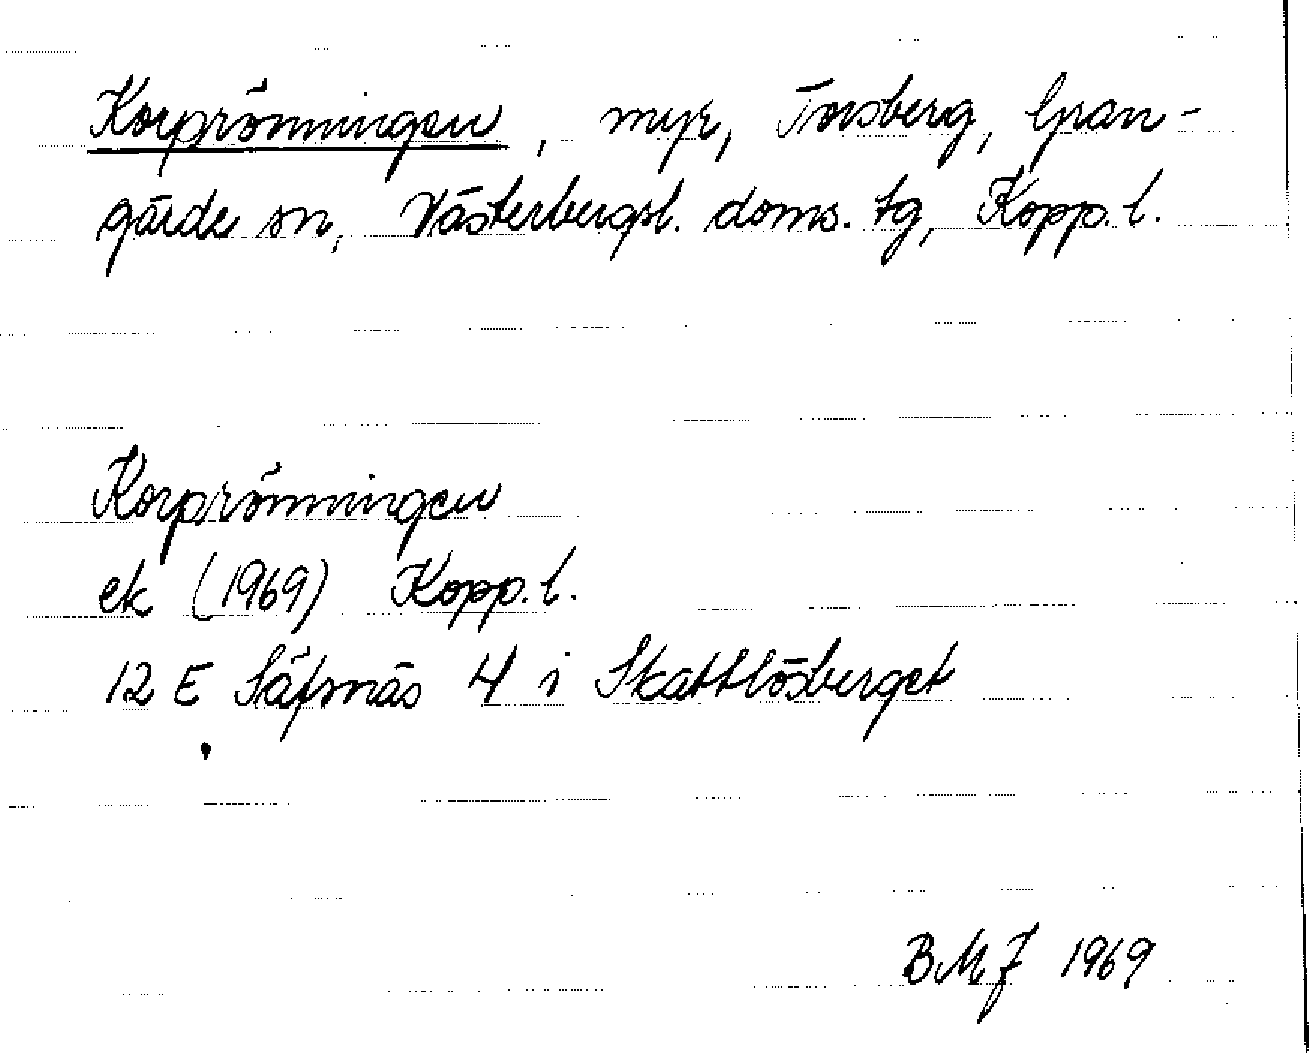 Korprönningen, myr, Torsberg, Gran-
gärde sn, Västerbergsl. doms. tg, Kopp. l.
Korprönningen
ek (1969) Kopp. l.
12 E Säfsnäs 4 i Skattlösberget
BMJ 1969